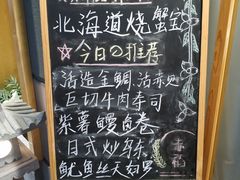 北海道烧蟹宝
☆今日の推荐
活造金鲷.活赤贝
巨切牛肉寿司
紫薯鳗鱼卷
日式炒乌冬
鱿鱼丝天妇罗